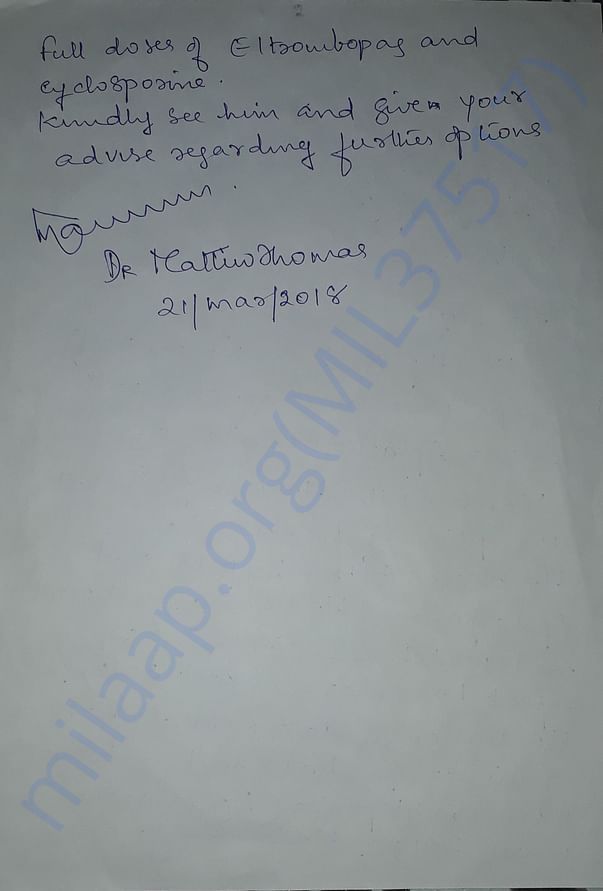 2
full doses of Eltrombopag and
cyclosporine.
kindly see him and give your
advise regarding further options
Dr Mathew Thomas
21/Mar/2018
milaap.org(MIL37517)